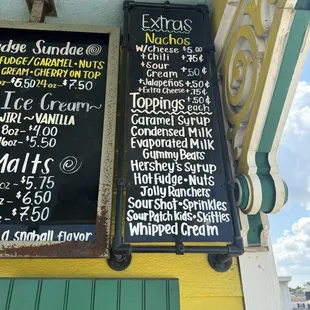 udge Sundae
FUDGE/CARAMEL · NUTS
CREAM - CHERRY ON TOP
$5.50 24oz $7.50
Ice Cream
WIRL ~ VANILLA
8oz - $4.00
16oz - $5.50
Malts
oz - $5.75
oz - $6.50
oz - $7.50
a snoball flavor
Extras
Nachos
w/Cheese $5.00
+Chili +.75¢
+Sour Cream +.50¢
+Jalapeños +.50¢
+Extra Cheese +.75¢
Toppings .50¢ each
Caramel Syrup
Condensed Milk
Evaporated Milk
Gummy Bears
Hershey's Syrup
Hot Fudge · Nuts
Jolly Ranchers
Sour Shot · Sprinkles
Sour Patch Kids · Skittles
Whipped Cream